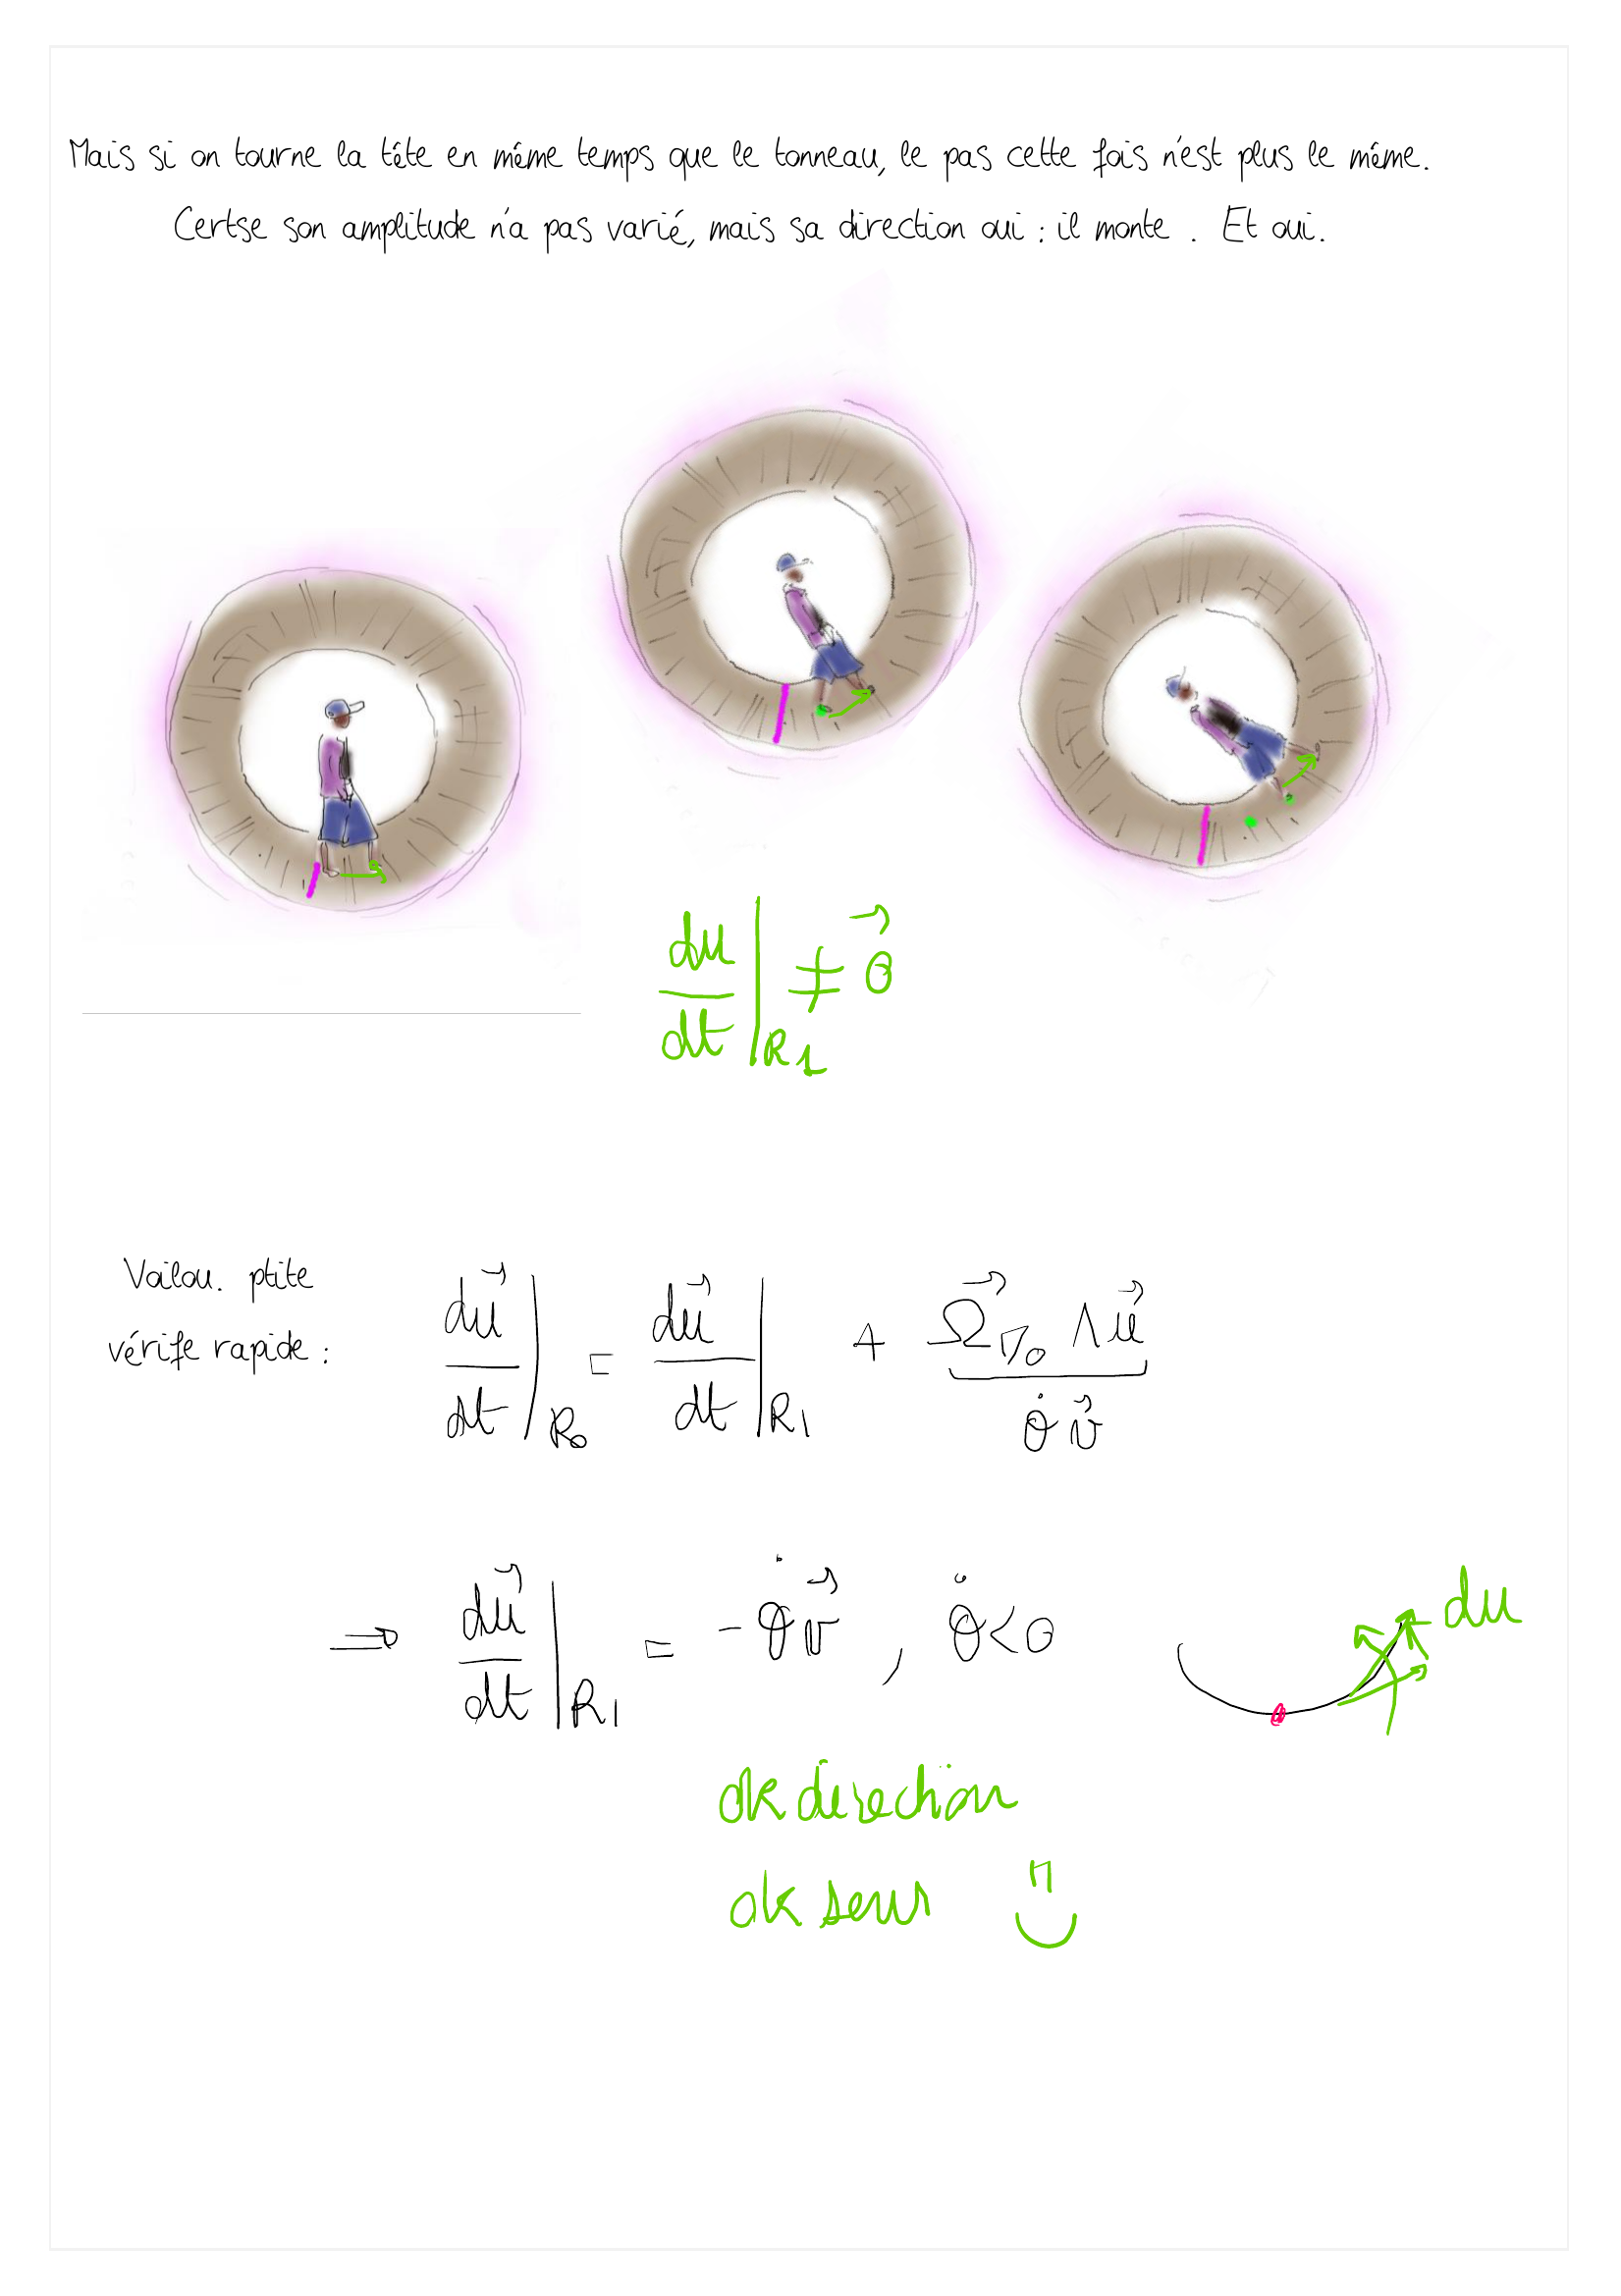 Mais si on tourne la tête en même temps que le tonneau, le pas cette fois n'est plus le même.
Certse son amplitude n'a pas varié, mais sa direction oui : il monte . Et oui.
du/dt|R1 ≠ 0⃗
Voilou. ptite
vérife rapide :
du⃗/dt|R0 = du⃗/dt|R1 + Ω⃗1/0 ∧ u⃗
θ̇ v⃗
⇒ du⃗/dt|R1 = -θ̇ v⃗ , θ̇ < 0
du
ok direction
ok sens